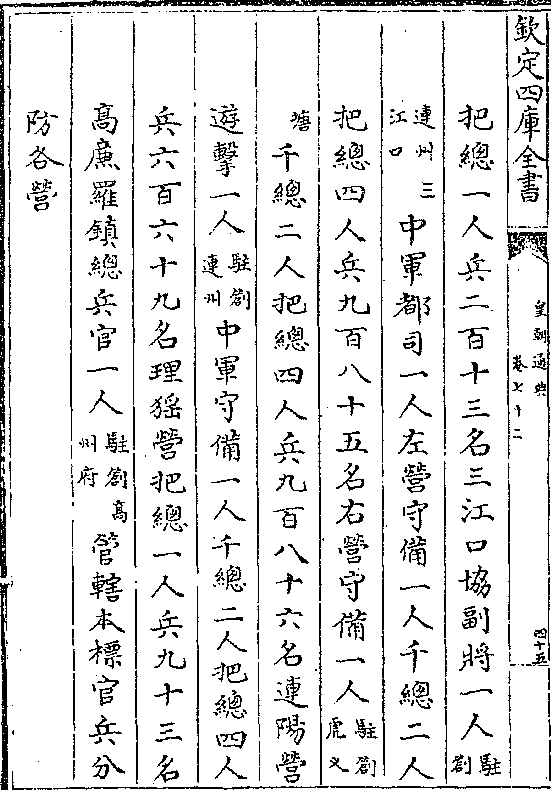 欽定四庫全書
皇朝通典
卷七十二
四十五
把總一人兵二百十三名三江口協副將一人駐劄
連州三江口中軍都司一人左營守備一人千總二人
把總四人兵九百八十五名右營守備一人駐劄虎叉
塘千總二人把總四人兵九百八十六名連陽營
遊擊一人駐劄連州中軍守備一人千總二人把總四人
兵六百六十九名理猺營把總一人兵九十三名
髙廉羅鎮總兵官一人駐劄髙州府管轄本標官兵分
防各營